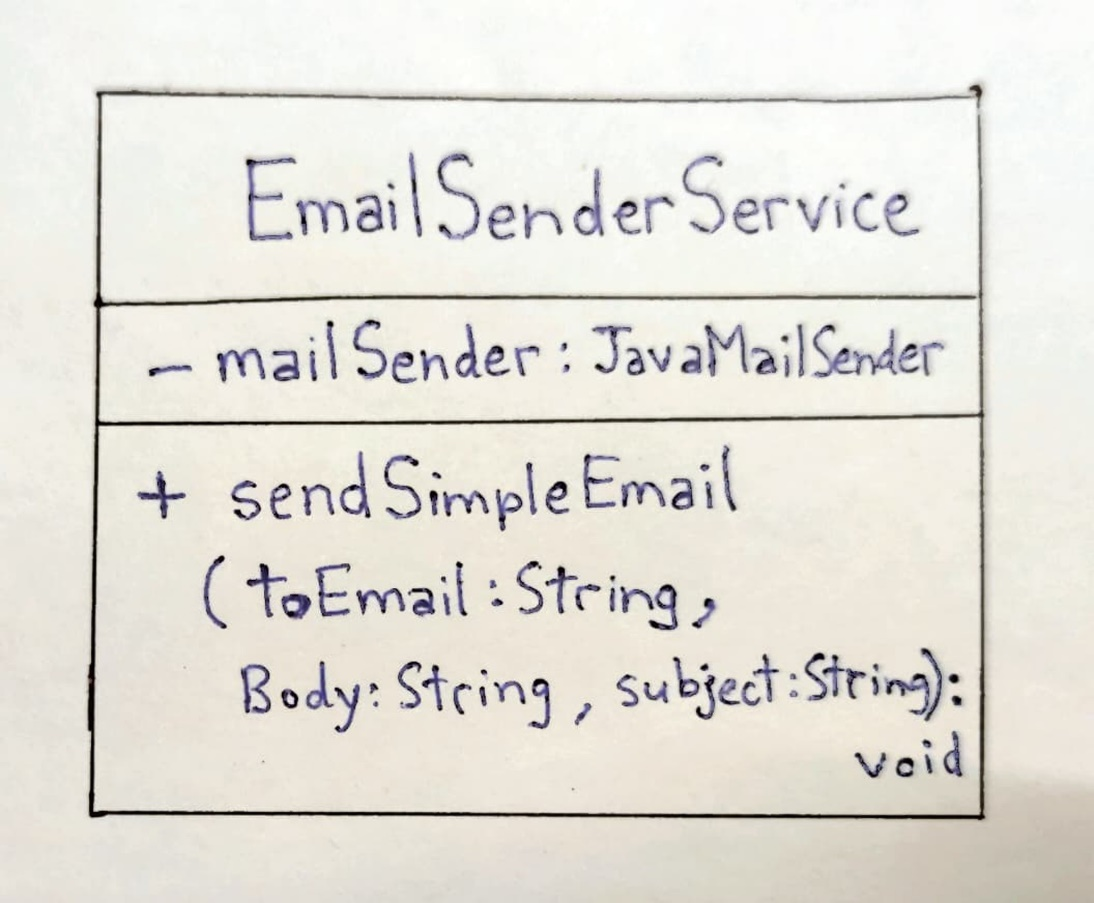 EmailSenderService
- mailSender : JavaMailSender
+ sendSimpleEmail
( toEmail : String,
Body: String, subject:String):
void